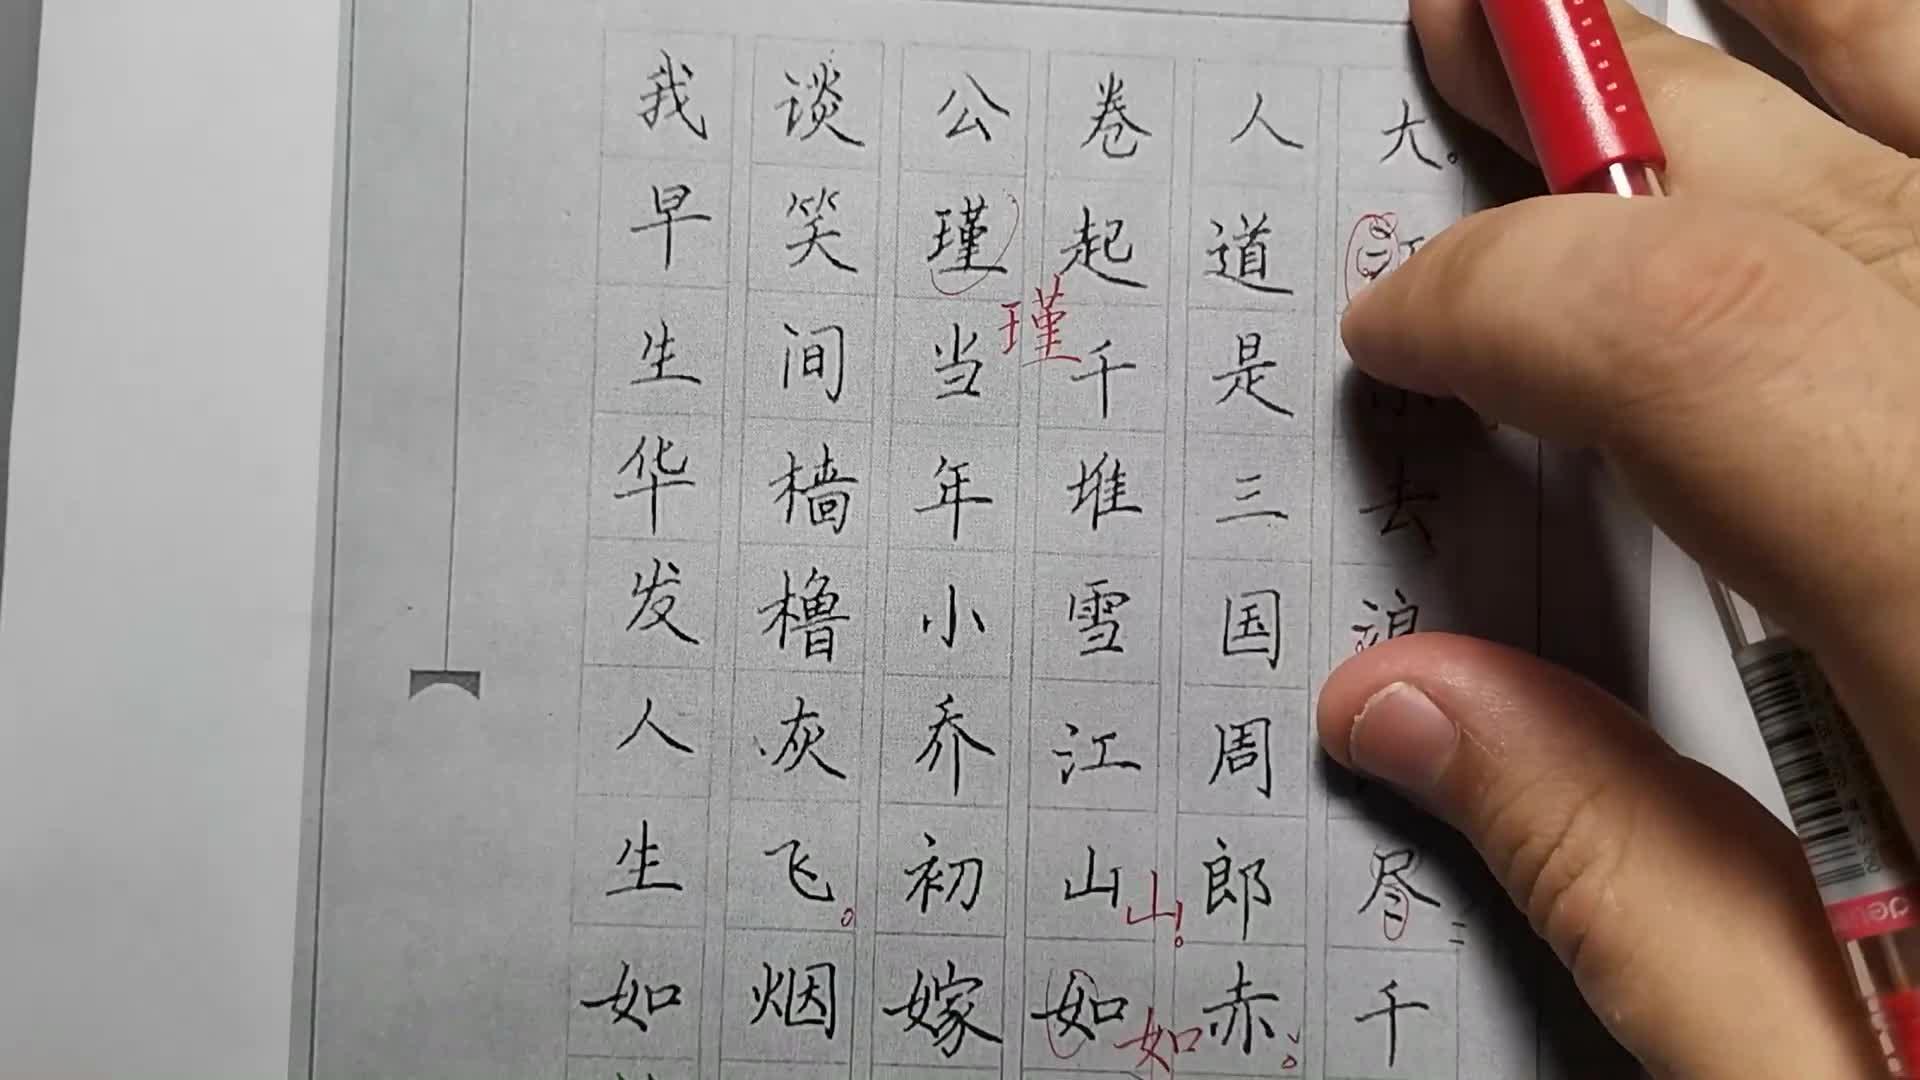 大去浪尽千
人道是三国周郎赤
卷起千堆雪江山如
公瑾当年小乔初嫁
谈笑间樯橹灰飞烟
我早生华发人生如
瑾
山
如